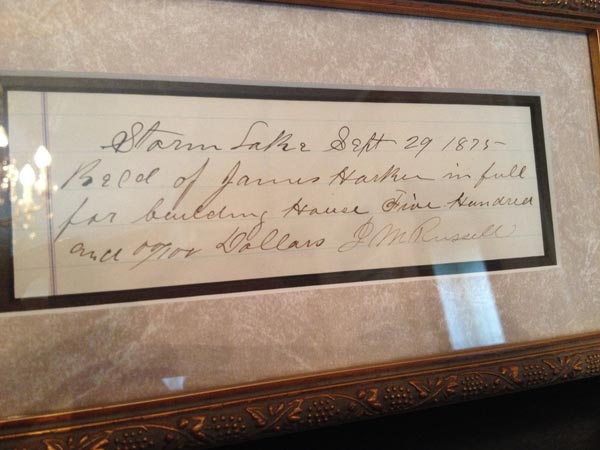 Storm Lake Sept 29 1875
Recd of James Harker in full
for building House Five Hundred
and 00/100 Dollars J M Russell